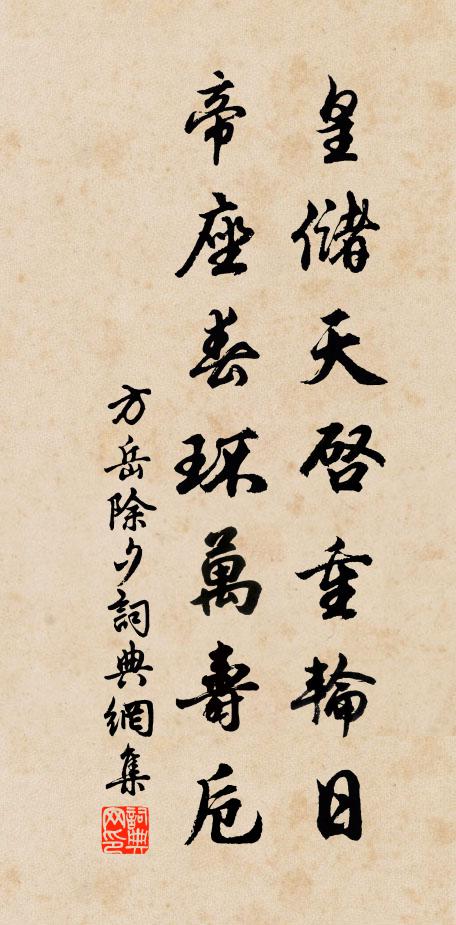 皇儲天啓重輪日
帝座春环萬壽卮
方岳除夕詞典網集
詞典网印